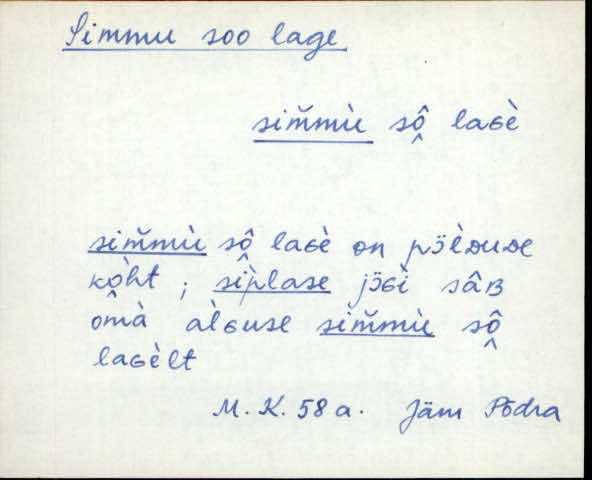 Simmu soo lage
sim̆mù sô̭ laɢè
sim̆mù sô̭ laɢè on pɔ̈èʟᴅuᴅe
kò̭ht ; sìplase jɔ̈ɢì sâʙ
omà alɢuse sim̆mù sô̭
laɢèlt
M. K. 58 a. Jäm Põdra